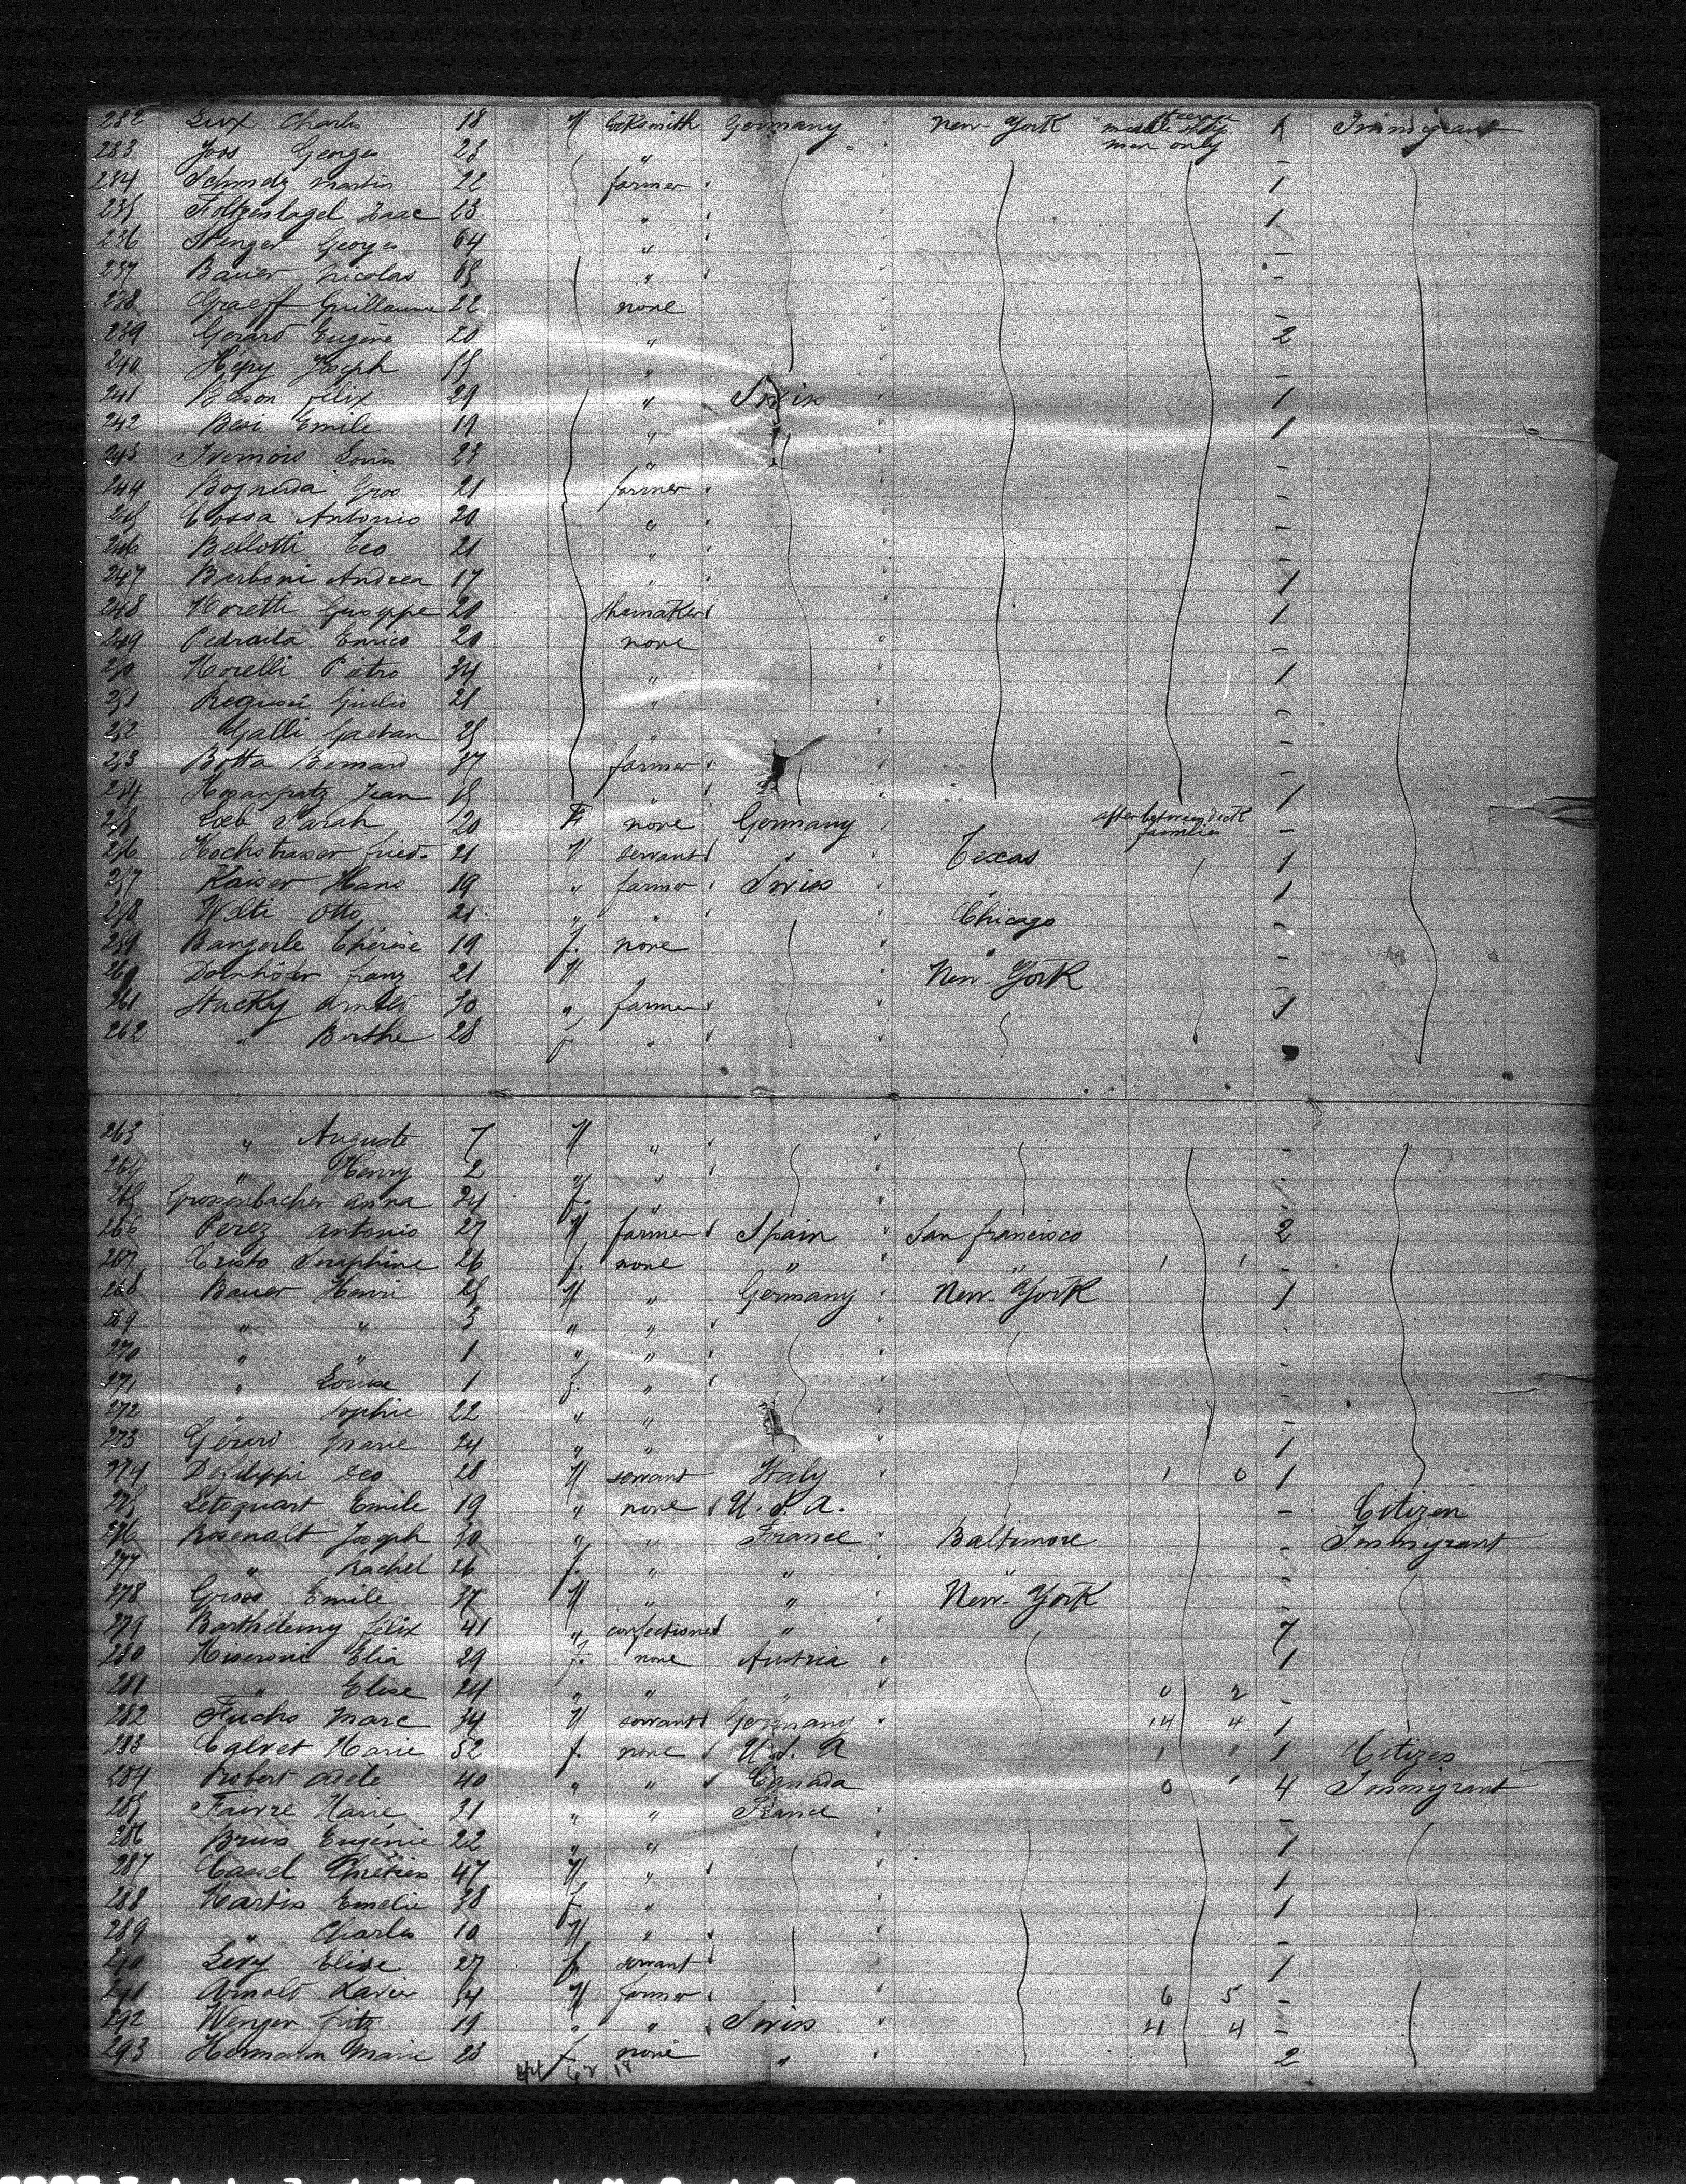 232 Lux Charles 18 M locksmith Germany New-York steerage middle ship men only 1 Immigrant
233 Joos Georges 23 " -
234 Schmetz Martin 22 farmer 1
235 Isaac 23 " 1
236 Stenger Georges 64 " -
237 Bauer Nicolas 65 " -
238 Graeff Guillaume 22 none -
239 Gerard Eugène 20 " 2
240 Joseph 55 " -
241 Félix 29 " Swiss 1
242 Besi Emile 19 " 1
243 Ivernois Louis 23 " -
244 Bognuda 21 farmer -
245 Cossa Antonio 20 " -
246 Bellotti Leo 21 " -
247 Barboni Andrea 17 " 1
248 Moretti Giuseppe 20 shoemaker 1
249 Pedraita Enrico 20 none -
250 Morelli Pietro 34 " 1
251 Giulio 21 " -
252 Galli Gaetan 25 " -
253 Botta Bernard 37 farmer -
254 Jean 18 " 1
255 Loeb Sarah 20 F none Germany after between deck families -
256 Hochstrasser fried. 21 M servant " Texas 1
257 Kaiser Hans 19 " farmer Swiss " 1
258 Welti Otto 21 " " Chicago -
259 Bangerle Thérèse 19 f. none " -
260 Dornhöfer franz 21 M New-York -
261 Stucky Arnold 30 " farmer 1
262 " Berthe 28 f "
263 " Auguste 7 M " -
264 " Henry 2 " " -
265 Grossenbacher Anna 24 f. -
266 Perez Antonio 27 M farmer Spain San francisco 2
267 Cristo Seraphine 26 f. none " " 1 1 -
268 Bauer Henri 25 M " Germany New-York 1
269 " " 3 " " -
270 " " 1 " " -
271 " Louise 1 f. " -
272 " Sophie 22 " " -
273 Gérard Marie 24 " " 1
274 Defilippi Leo 28 M servant Italy 1 0 1
275 Letoquart Emile 19 " none U.S.A. - Citizen
276 Rosenalt Joseph 30 " " France Baltimore - Immigrant
277 " Rachel 26 f. " " " -
278 Emile 37 M " " New-York -
279 Barthélemy félix 41 " confectioner " 7
280 Elia 29 f. none Austria 1
281 " Elise 24 " " " 0 2 -
282 Fuchs Marc 34 M servant Germany 14 4 1
283 Calvet Marie 52 f. none U.S.A 1 1 1 Citizen
284 Robert Adèle 40 " " Canada 0 1 4 Immigrant
285 Faivre Marie 31 " " France -
286 Brun Eugénie 22 " " 1
287 Cassel Chrétien 47 M " 1
288 Martin Emélie 38 f " 1
289 " Charles 10 M " -
290 Lévy Elise 27 f. servant 1
291 Arnold Xavier 54 M farmer 6 5 -
292 Wenger fritz 19 " " Swiss 21 4 -
293 Hermann Marie 23 f. none " 2